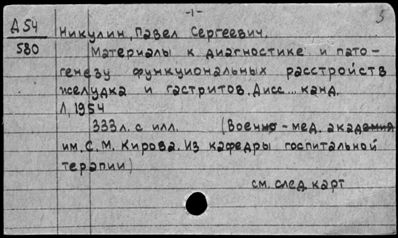 -1-
5
Д54 Никулин, Павел Сергеевич.
580 Материалы к диагностике и пато-
генезу функциональных расстройств
желудка и гастритов. Дисс... канд.
Л, 1954
333л. с илл. (Военно-мед. академия
им. С. М. Кирова. Из кафедры госпитальной
терапии)
см. след. карт